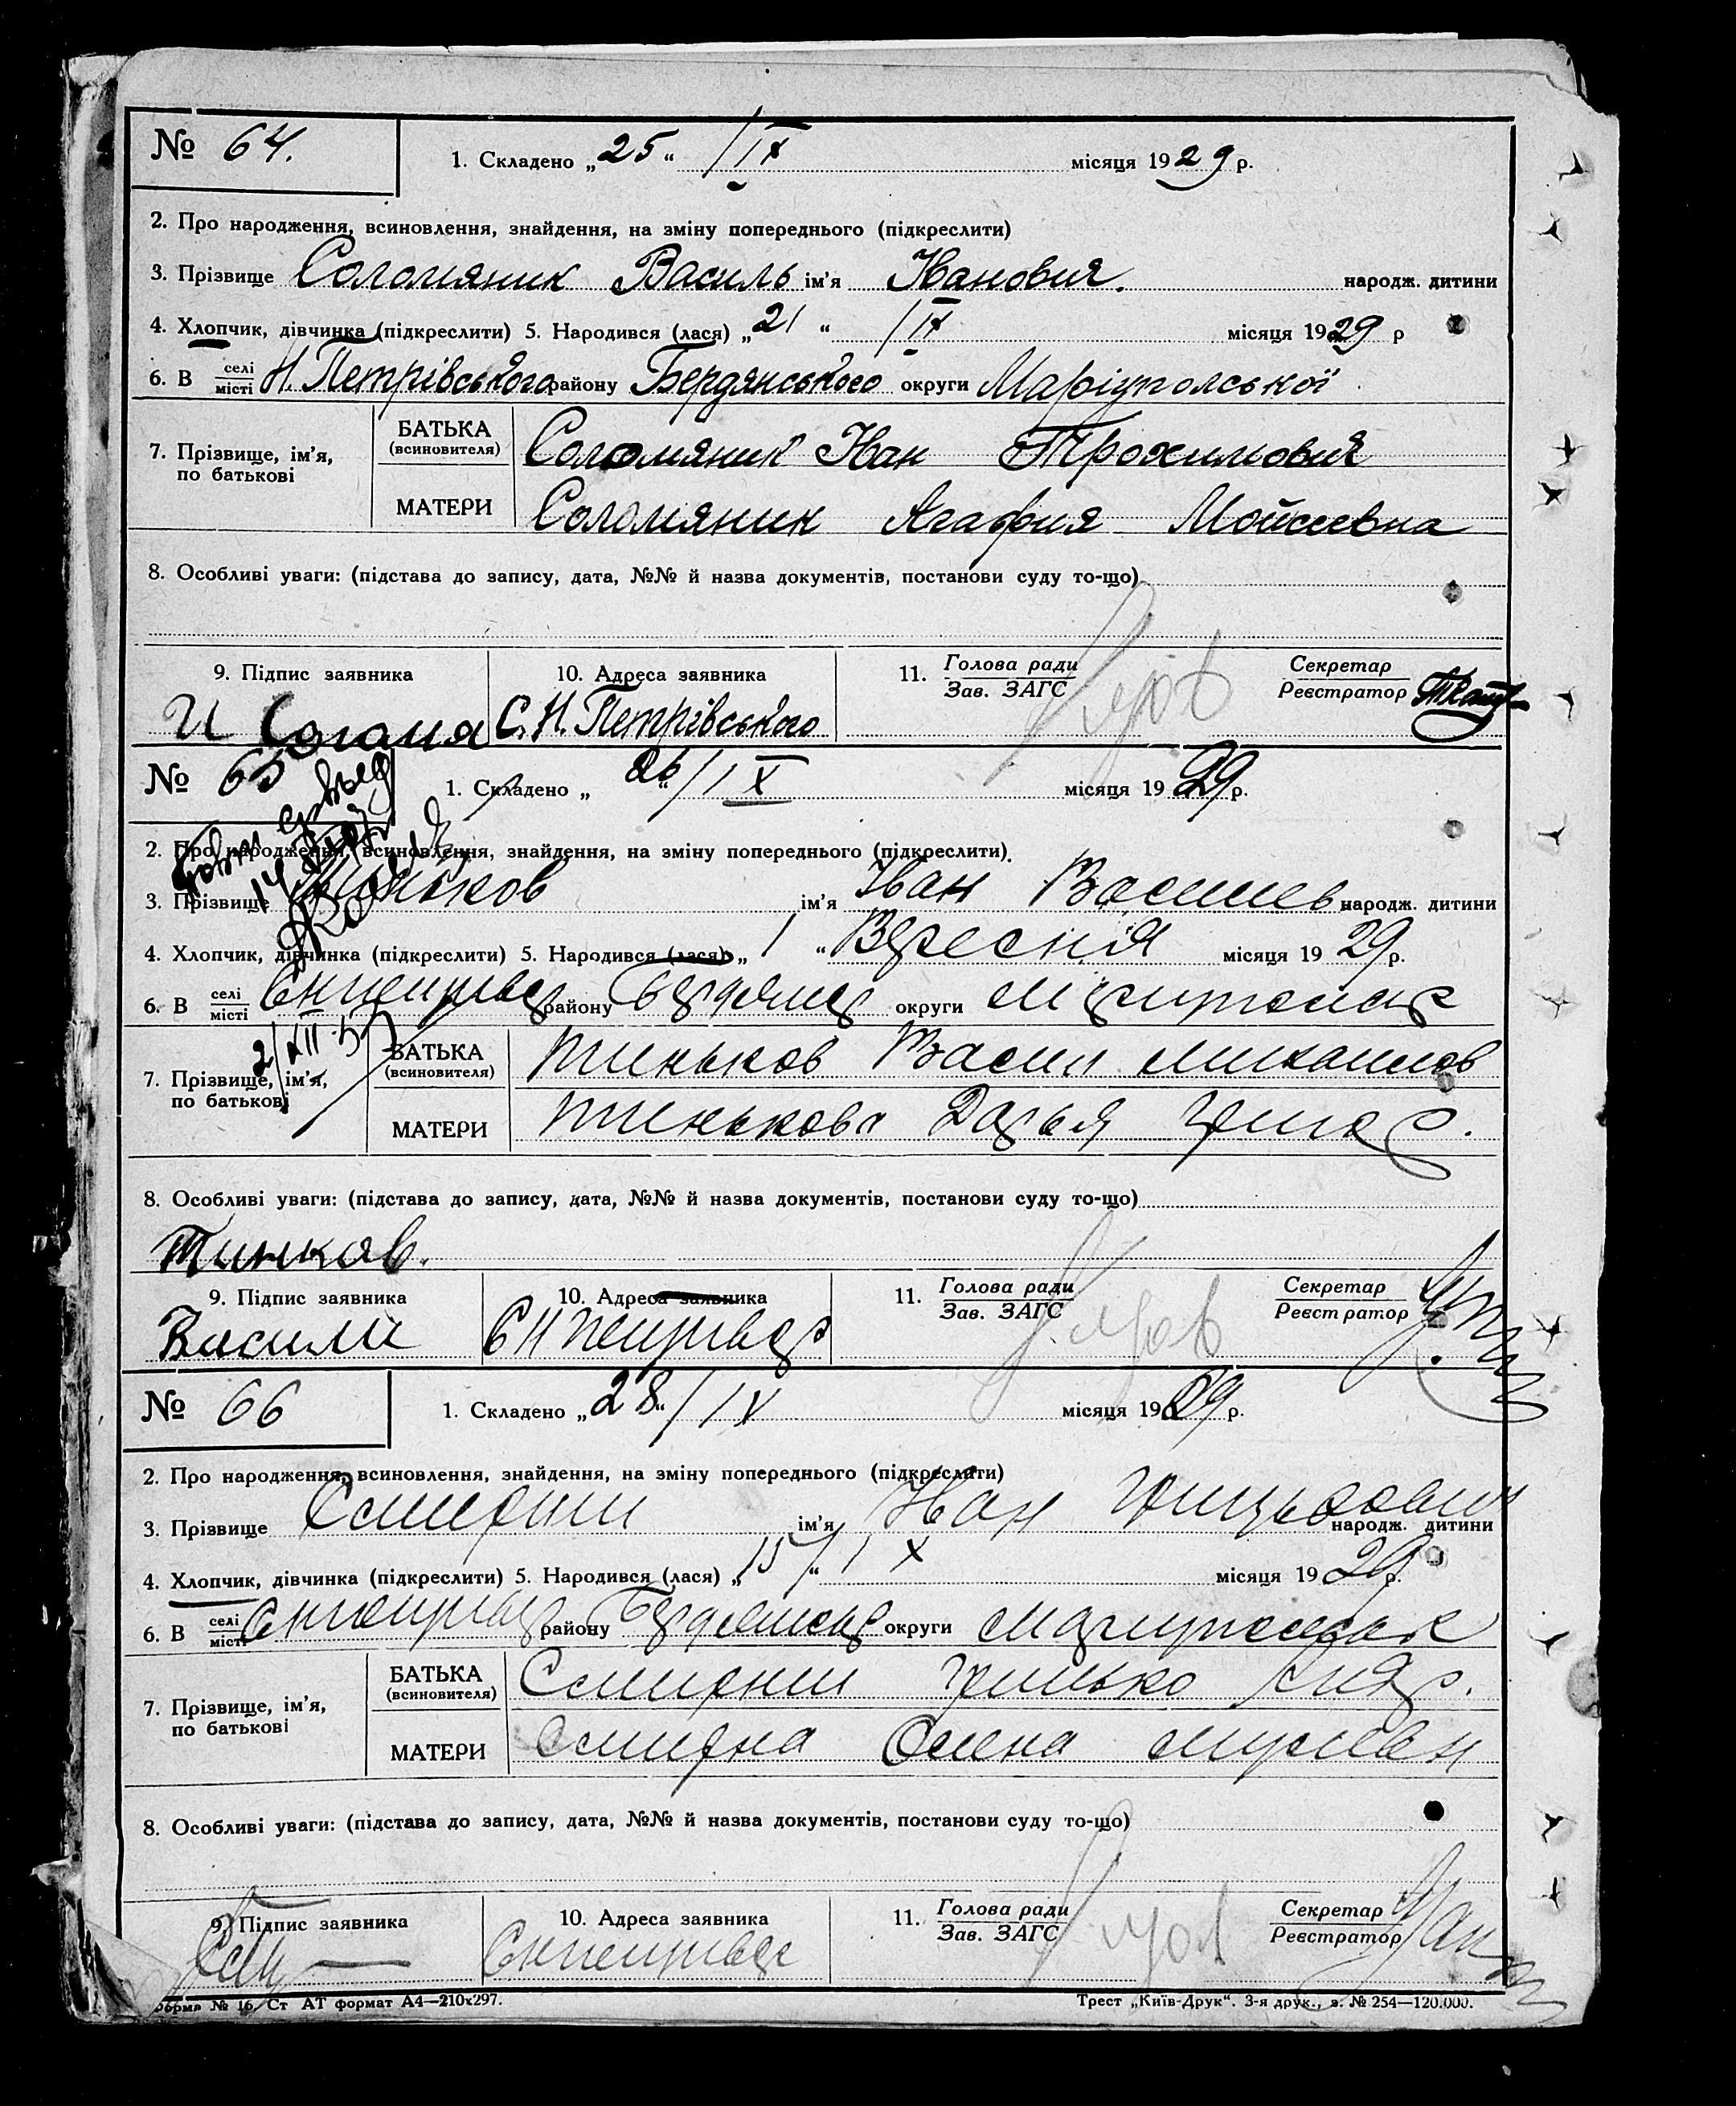 № 64. 1. Складено „25“ /IX місяця 1929 р.
2. Про народження, всиновлення, знайдення, на зміну попереднього (підкреслити)
3. Прізвище Соломяник Василь ім'я Іванович. народж. дитини
4. Хлопчик, дівчинка (підкреслити) 5. Народився (лася) „21“ /IX місяця 1929 р
6. В селі місті Н. Петрівського району Бердянського округи Маріупольської
7. Прізвище, ім'я, по батькові БАТЬКА (всиновителя) Соломяник Іван Трохимович
МАТЕРИ Соломяник Агафия Мойсеевна
8. Особливі уваги: (підстава до запису, дата, №№ й назва документів, постанови суду то-що)
9. Підпис заявника 10. Адреса заявника 11. Голова ради Зав. ЗАГС Секретар Реєстратор
И С. Н. Петрівського
№ 65 1. Складено „26“ /IX місяця 1929 р.
2. Про народження, всиновлення, знайдення, на зміну попереднього (підкреслити).
3. Прізвище Тиньков ім'я Іван Василев народж. дитини
4. Хлопчик, дівчинка (підкреслити) 5. Народився (лася) „1“ Вересня місяця 1929 р.
6. В селі місті району округи
2/XII-57
7. Прізвище, ім'я, по батькові БАТЬКА (всиновителя) Тиньков Васил Михаилов
МАТЕРИ Тинькова Дарья Григор.
8. Особливі уваги: (підстава до запису, дата, №№ й назва документів, постанови суду то-що)
Тинков.
9. Підпис заявника 10. Адреса заявника 11. Голова ради Зав. ЗАГС Секретар Реєстратор
Василь
№ 66 1. Складено „28“ /IX місяця 1929 р.
2. Про народження, всиновлення, знайдення, на зміну попереднього (підкреслити)
3. Прізвище Смирни ім'я Іван Грицькович народж. дитини
4. Хлопчик, дівчинка (підкреслити) 5. Народився (лася) „15“ /IX місяця 1929 р.
6. В селі місті району округи
7. Прізвище, ім'я, по батькові БАТЬКА (всиновителя) Смирни Грицько
МАТЕРИ Смирна Олена
8. Особливі уваги: (підстава до запису, дата, №№ й назва документів, постанови суду то-що)
9. Підпис заявника 10. Адреса заявника 11. Голова ради Зав. ЗАГС Секретар Реєстратор
Форма № 16. Ст АТ формат А4—210х297. Трест „Київ-Друк“. 3-я друк., з. № 254—120.000.